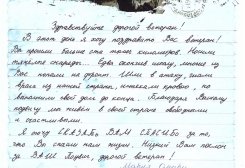 Здравствуйте дорогой ветеран!
В этот день я хочу поздравить Вас, ветеран!
Вы прошли больше ста тысяч километров. Носили
тяжёлые снаряды.. Едва окончив школу, многие из
Вас попали на фронт. Шли в атаку, гнали
врага из нашей страны, истекали кровью, но
выполнили свой долг до конца. Благодаря Вашему
подвигу мы живём в своей стране свободными
и счастливыми.
Я хочу СКАЗАТЬ ВАМ СПАСИБО за то,
что Вы спасли нам жизнь. Низкий Вам поклон
за ВАШ Подвиг, дорогой ветеран!